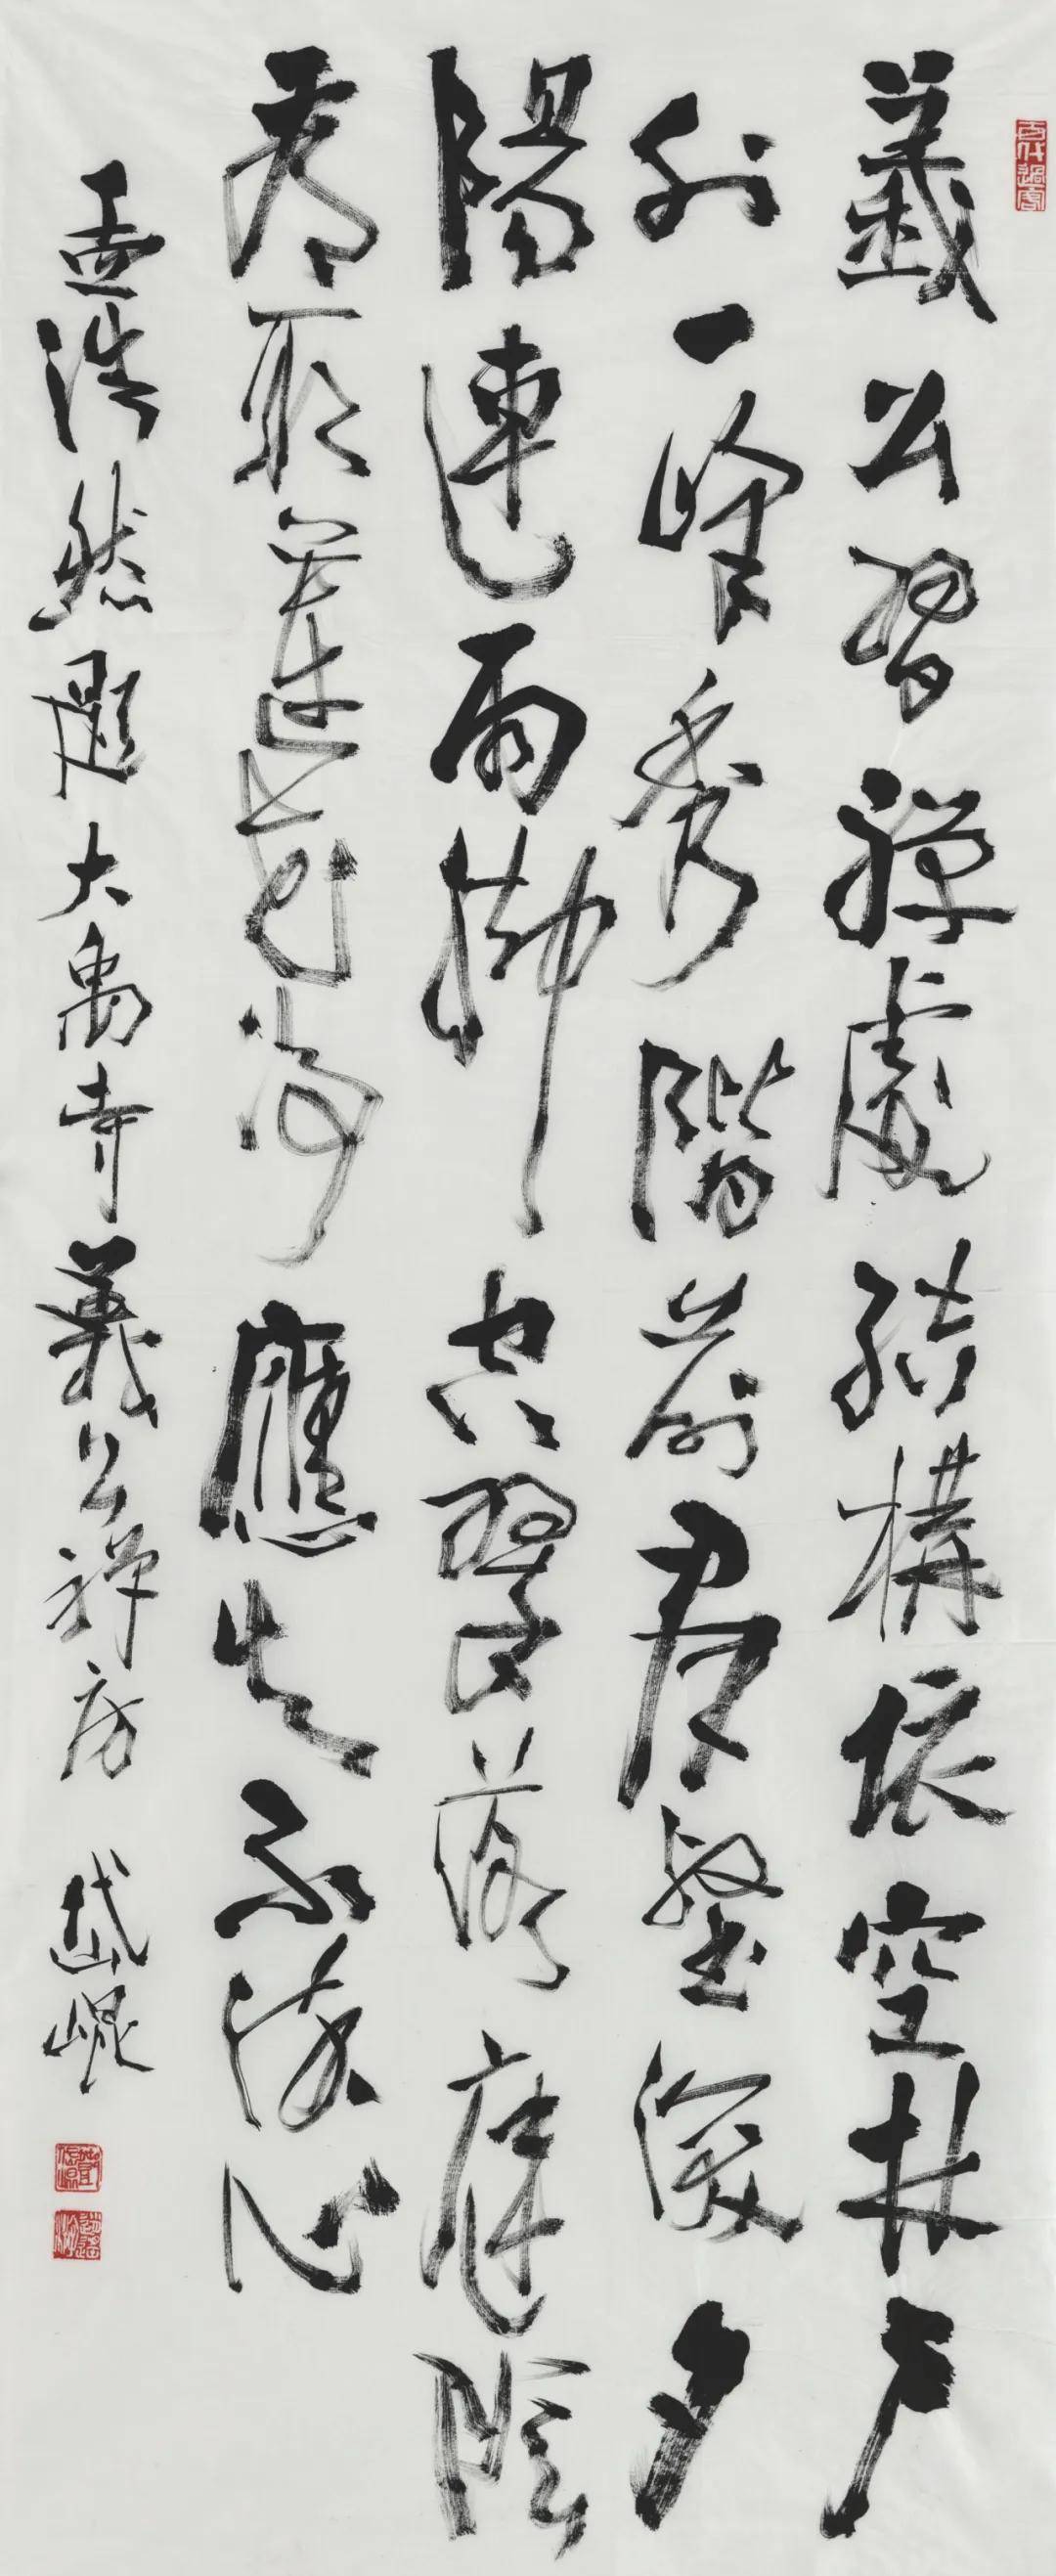 百代過客
義公習禪處結構依空林戶
外一峰秀階前羣壑深夕
陽連雨腳空翠落庭陰
看取蓮花淨應知不染心
孟浩然題大禹寺義公禪房 岱崐